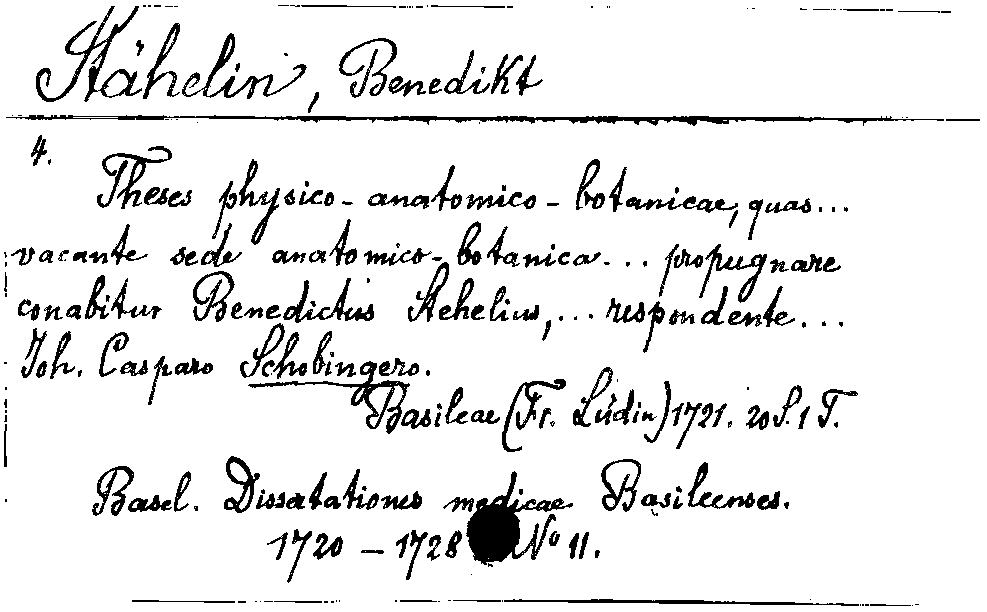 Stähelin, Benedikt
4.
Theses physico-anatomico-botanicae, quas...
vacante sede anatomico-botanica... propugnare
conabitur Benedictus Stehelius,... respondente...
Joh. Casparo Schobingero.
Basileae (Fr. Lüdin) 1721. 20 S. 1 T.
Basel. Dissertationes medicae Basileenses.
1720 - 1728 No 11.